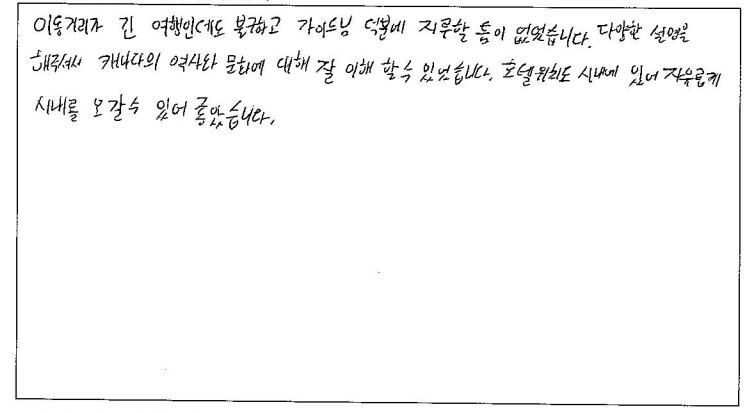 이동거리가 긴 여행인데도 불구하고 가이드님 덕분에 지루할 틈이 없었습니다. 다양한 설명을
해주셔서 캐나다의 역사와 문화에 대해 잘 이해 할수 있었습니다. 호텔위치도 시내에 있어 자유롭게
시내를 오갈수 있어 좋았습니다.